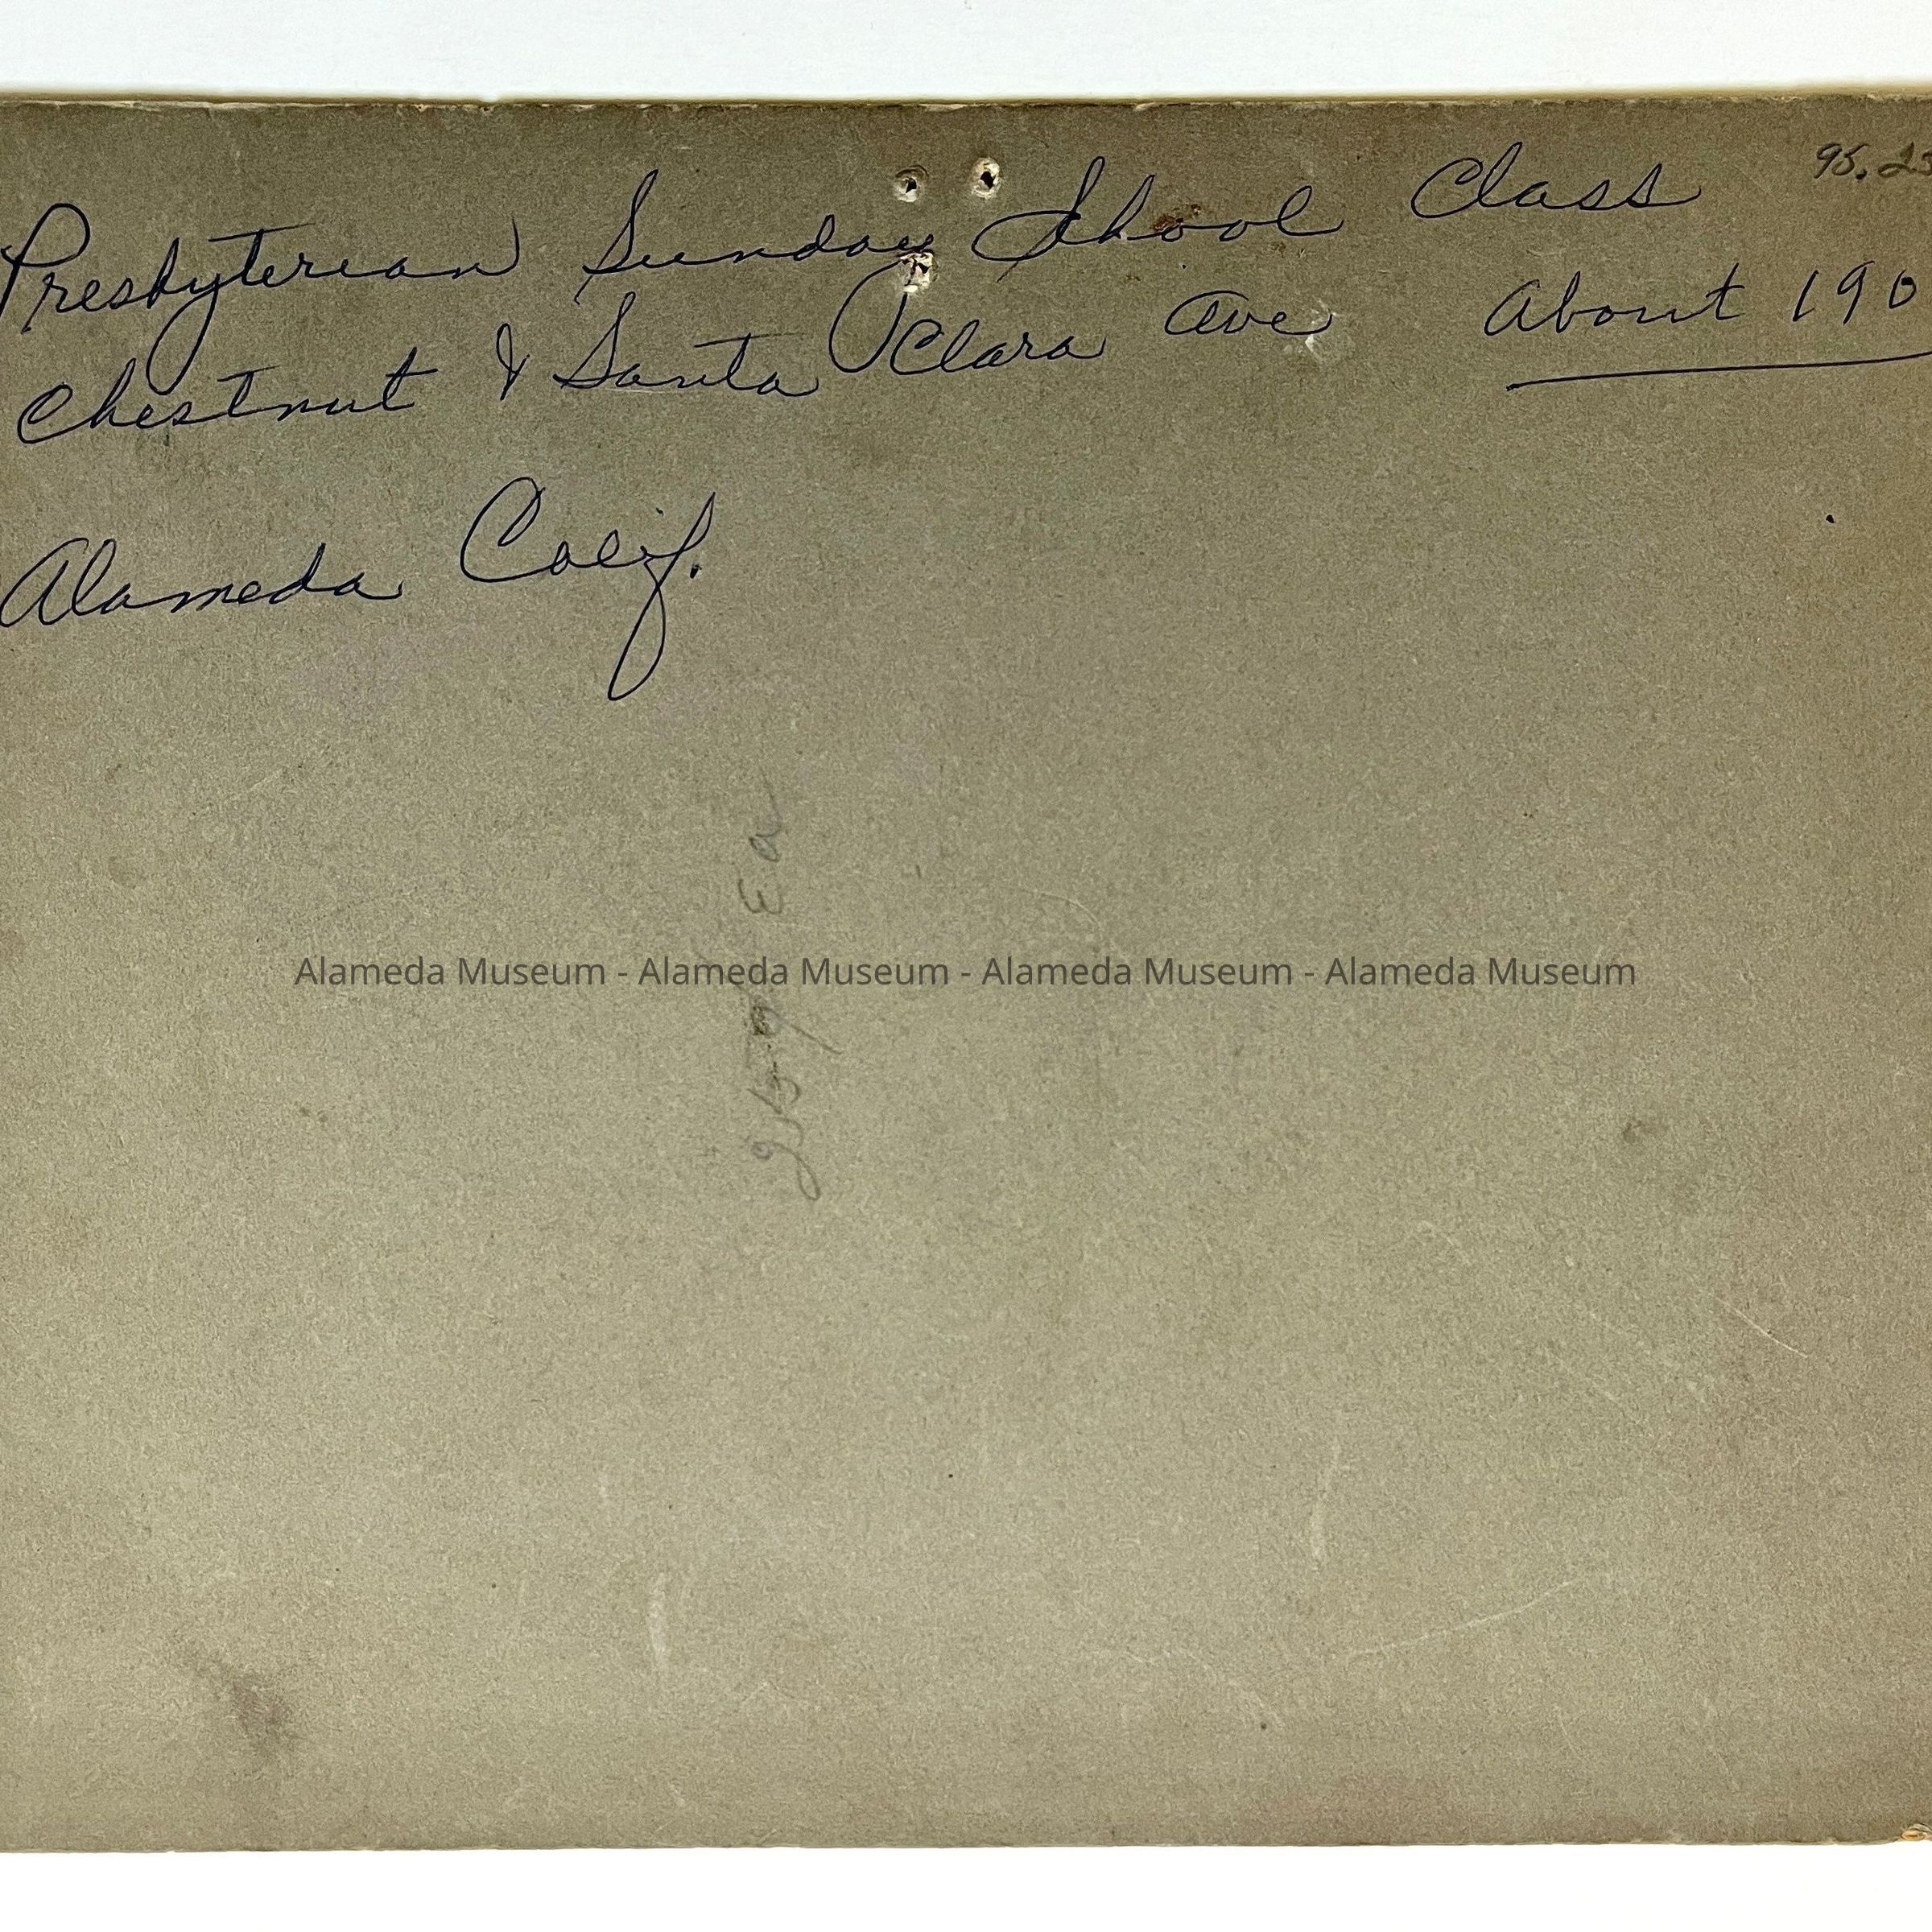 95.23
Presbyterian Sunday School Class
Chestnut & Santa Clara Ave About 190
Alameda Calif.
Alameda Museum - Alameda Museum - Alameda Museum - Alameda Museum